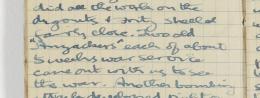 did all the work on the
dugouts & Fritz shelled
fairly close. Two old
"Anzackers" each of about
5 weeks war service
came out with us to see
the war. Another bombing